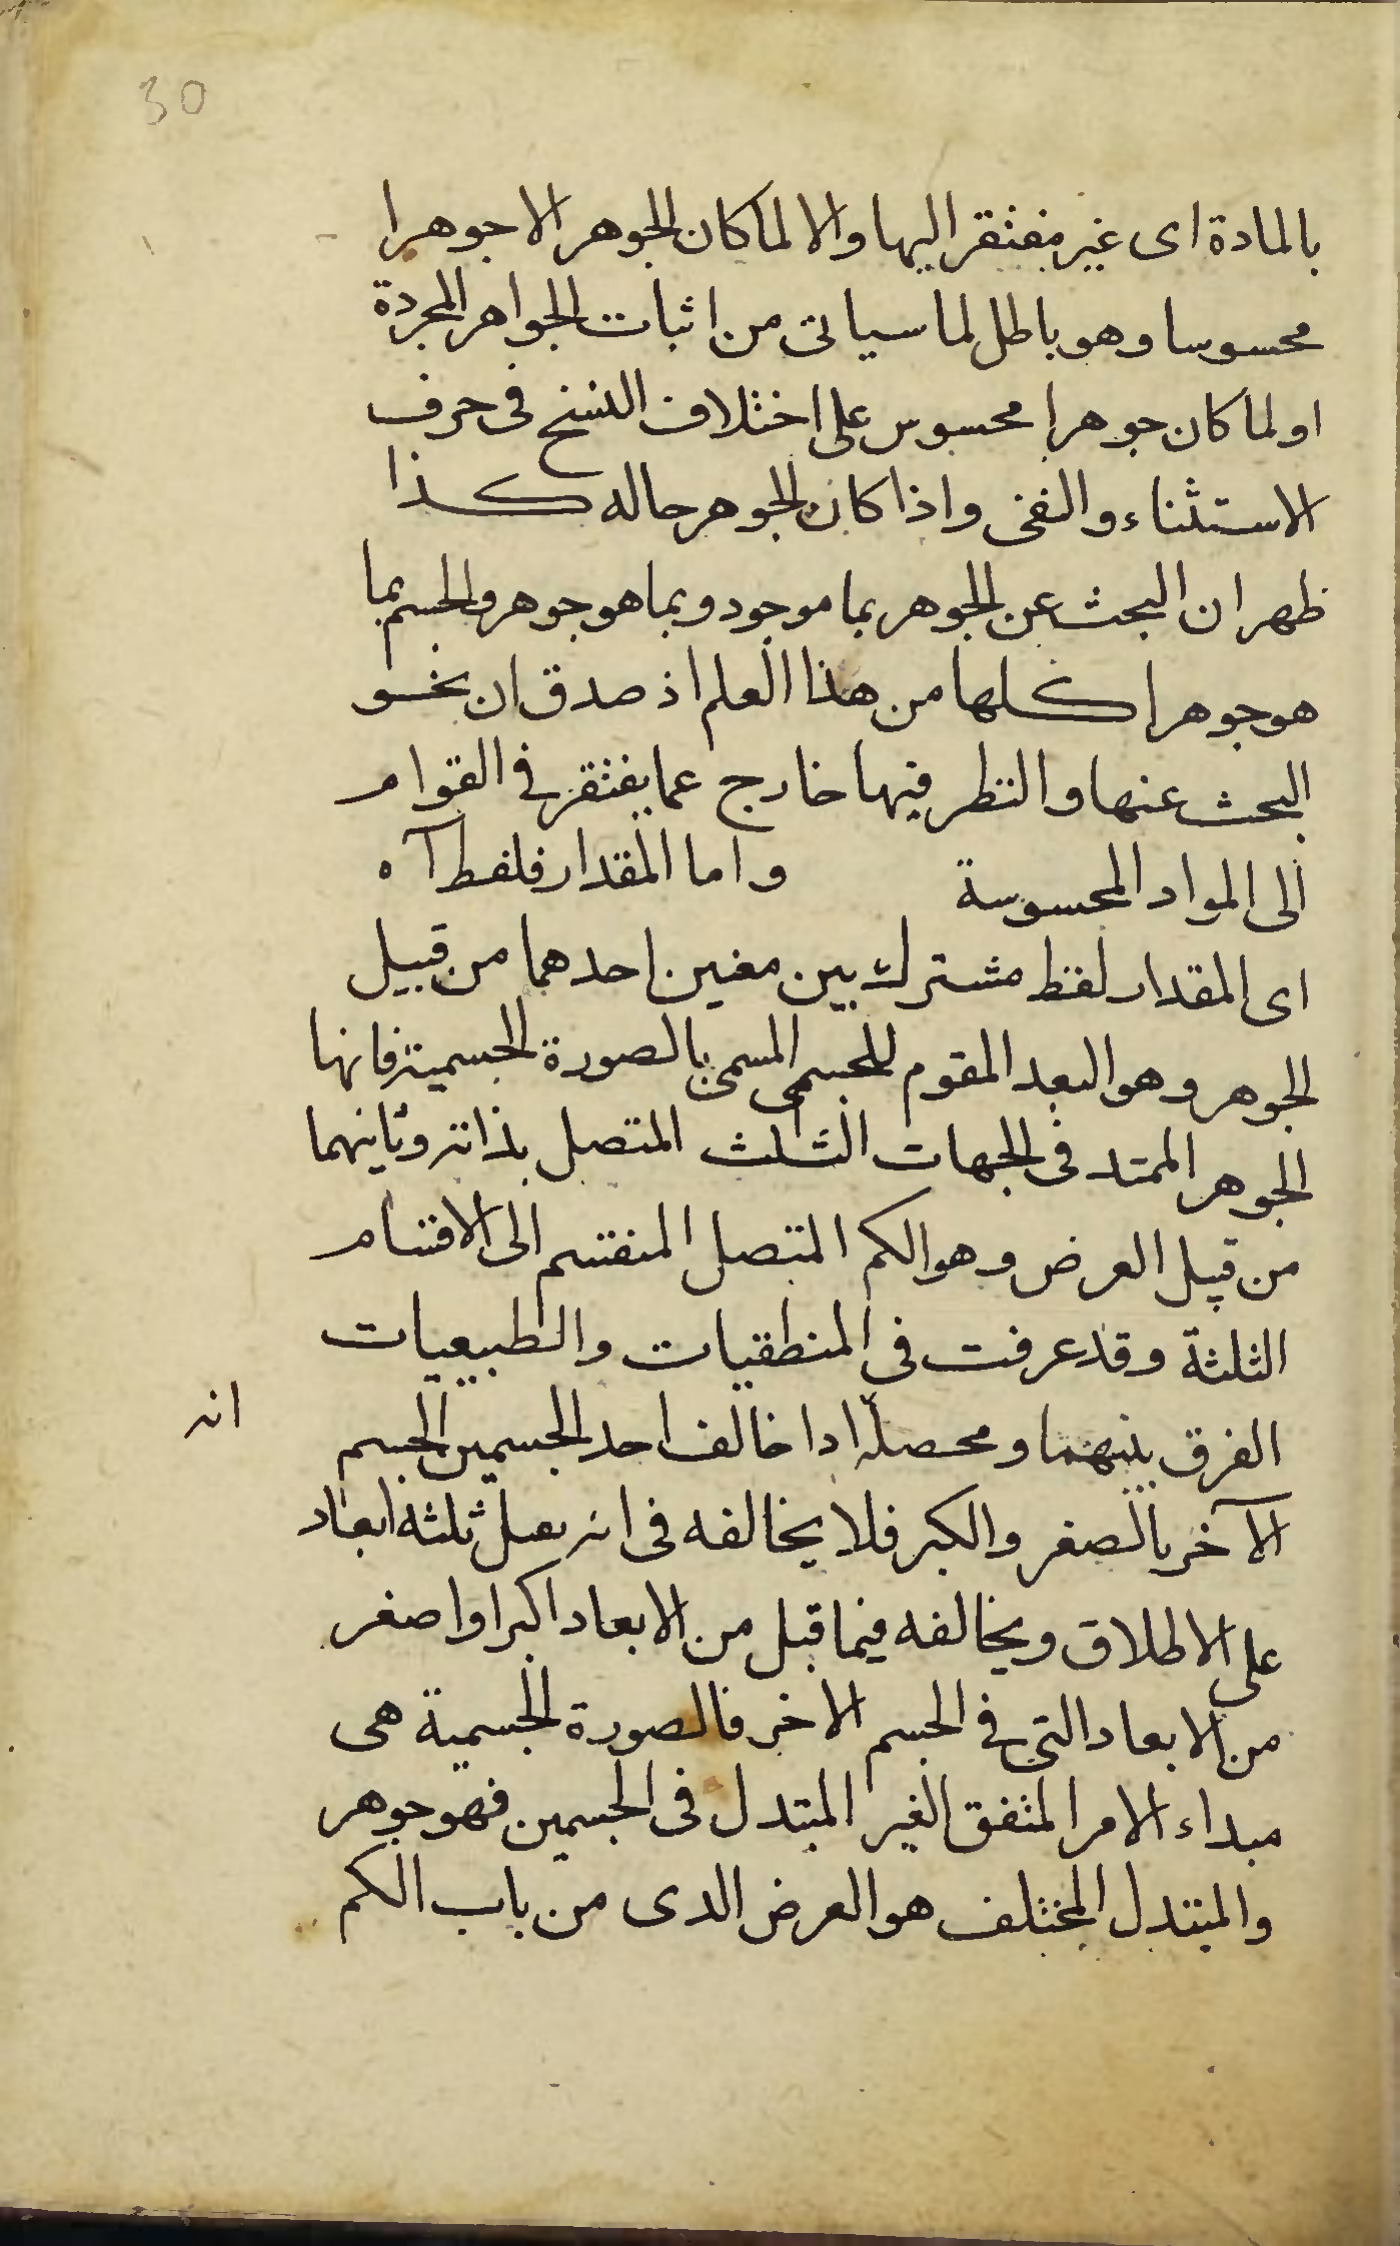 30
بالمادة اى غير مفتقر اليها والا لما كان الجوهر الا جوهرا
محسوسا وهو باطل لما سياتى من اثبات الجواهر المجردة
او لما كان جوهرا محسوس على اختلاف النسخ فى حرف
الاستثناء والنفى واذا كان الجوهر حاله كذا
ظهر ان البحث عن الجوهر بما موجود وبما هو جوهر والجسم بما
هو جوهرا كلها من هذا العلم اذ صدق ان نحو
البحث عنها والنظر فيها خارج عما يفتقر فى القوام
الى المواد المحسوسة واما المقدار فلفط آه
اى المقدار لفظ مشترك بين معنين احدهما من قبيل
الجوهر وهو البعد المقوم للجسمى المسمى بالصورة الجسمية فانها
الجوهر الممتد فى الجهات الثلث المتصل بذاته وثانيهما
من قبيل العرض وهو الكم المتصل المنقسم الى الاقسام
الثلثة وقد عرفت فى المنطقيات والطبيعيات
الفرق بينهما ومحصله اذا خالف احد الجسمين الجسم
انه
الآخر بالصغر والكبر فلا يخالفه فى انه يقبل ثلثه ابعاد
على الاطلاق ويخالفه فيما قبل من الابعاد اكبر او اصغر
من الابعاد التى فى الجسم الاخر فالصورة الجسمية هى
مبداء الامر المتفق الغير المتبدل فى الجسمين فهو جوهر
والمتبدل المختلف هو العرض الدى من باب الكم